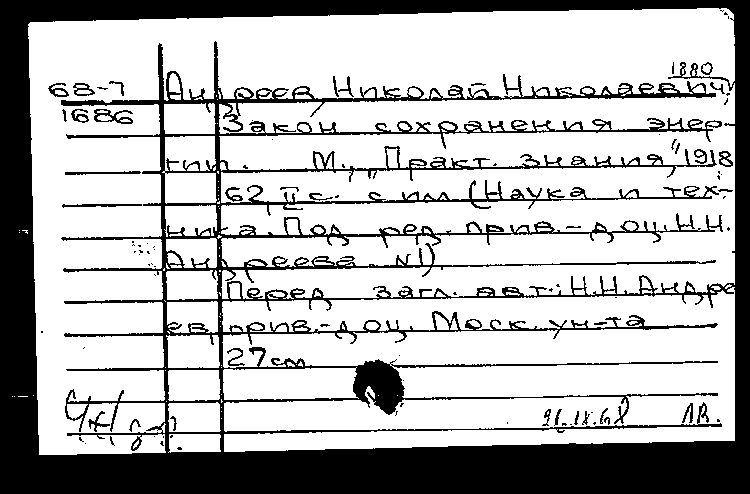 1880
68-7 Андреев Николай Николаевич
1686 Закон сохранения энер-
гии. М., „Практ. знания", 1918
62, II с. с илл (Наука и тех-
ника. Под ред. прив.-доц. Н.Н.
Андреева. N1).
Перед загл. авт.: Н.Н. Андре
ев, прив.-доц. Моск. ун-та
27см.
IX.68 ЛВ.